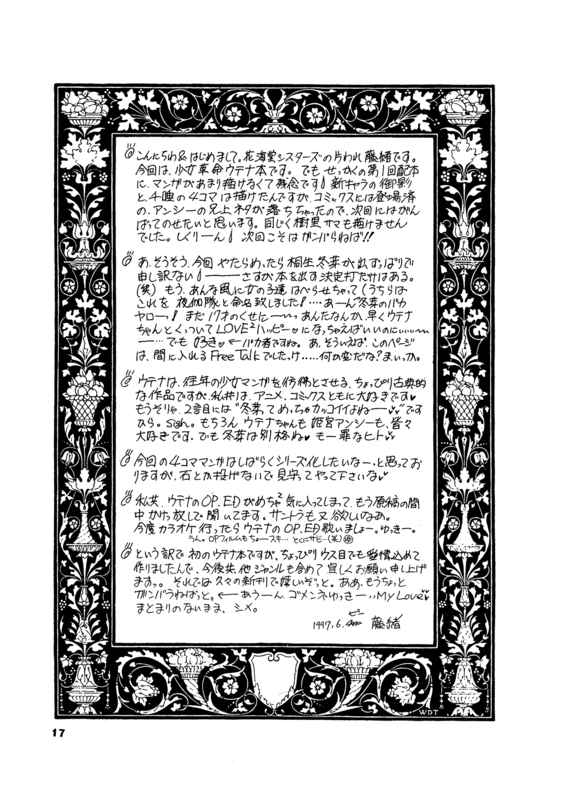 こんにちわ&はじめまして。花海堂シスターズの片われ藤緒です。
今回は、少女革命ウテナ本です。でもせっかくの第1回配本
に、マンガがあまり描けなくて残念です! 新キャラの御影
と、千唾の4コマは描けたんですが、コミックスには登場済
の、アンシーの兄上ネタが落ちちゃったので、次回にはがん
ばってのせたいと思います。同じく樹里サマも描けません
でした。しくりーん! 次回こそはガンバらねば!!
あ、そうそう、今回やたらめったら桐生冬芽が出ずっぱりで
申し訳ない!――――さすが本を出す決定打だけはある。
(笑) もう、あんな風に女の子達はべらせちゃって(うちらは
これを夜伽隊と命名致しました!‥‥あーん冬芽のバカ
ヤロー! まだ17才のくせにーーっ あんたなんか、早くウテナ
ちゃんとくっついてLOVE²ハッピーになっちゃえばいいのにぃぃぃ
―…でも好き♥←バカ者ですねぇ。あ、そういえば、このページ
は、間に入れるFree Talkでしたっけ……何か変だな?まいっか。
ウテナは、往年の少女マンガを彷彿とさせる、ちょぴり古典的
な作品ですが、私共は、アニメ、コミックスともに大好きです♥
もうそりゃ、2言目には"冬芽ってめっちゃカッコイイよねー♥♥"です
から。Sigh。もちろんウテナちゃんも姫宮アンシーも、皆々
大好きです。でも冬芽は別格ね♥ もー罪なヒト♥
今回の4コママンガはしばらくシリーズ化したいなー。と思ってお
りますが、石とか投げないで見守ってやって下さいな♥
私共、ウテナのOP、EDがめちゃ²気に入ってしまって、もう原稿の間
中かけっ放しで聞いてます。サントラも又欲しいなあ。
今度カラオケ行ったらウテナのOP、ED歌いましょー。ゆっきー。
うん。OPフィルムもちょースキ… とくにサビー(笑)
という訳で初のウテナ本ですが、ちょぴりウス目でも愛情込めて
作りましたんで、今後共、他ジャンルも含めて宜しくお願い申し上げ
ますっ。それでは久々の新刊で嬉しいぞっと。ああ、もうちょと
ガンバらねばっと。←あうーん、ゴメンネゆっきー‥MY Love♥
まとまりのないまま、シメ。
1997.6. 藤緒
WDT
17